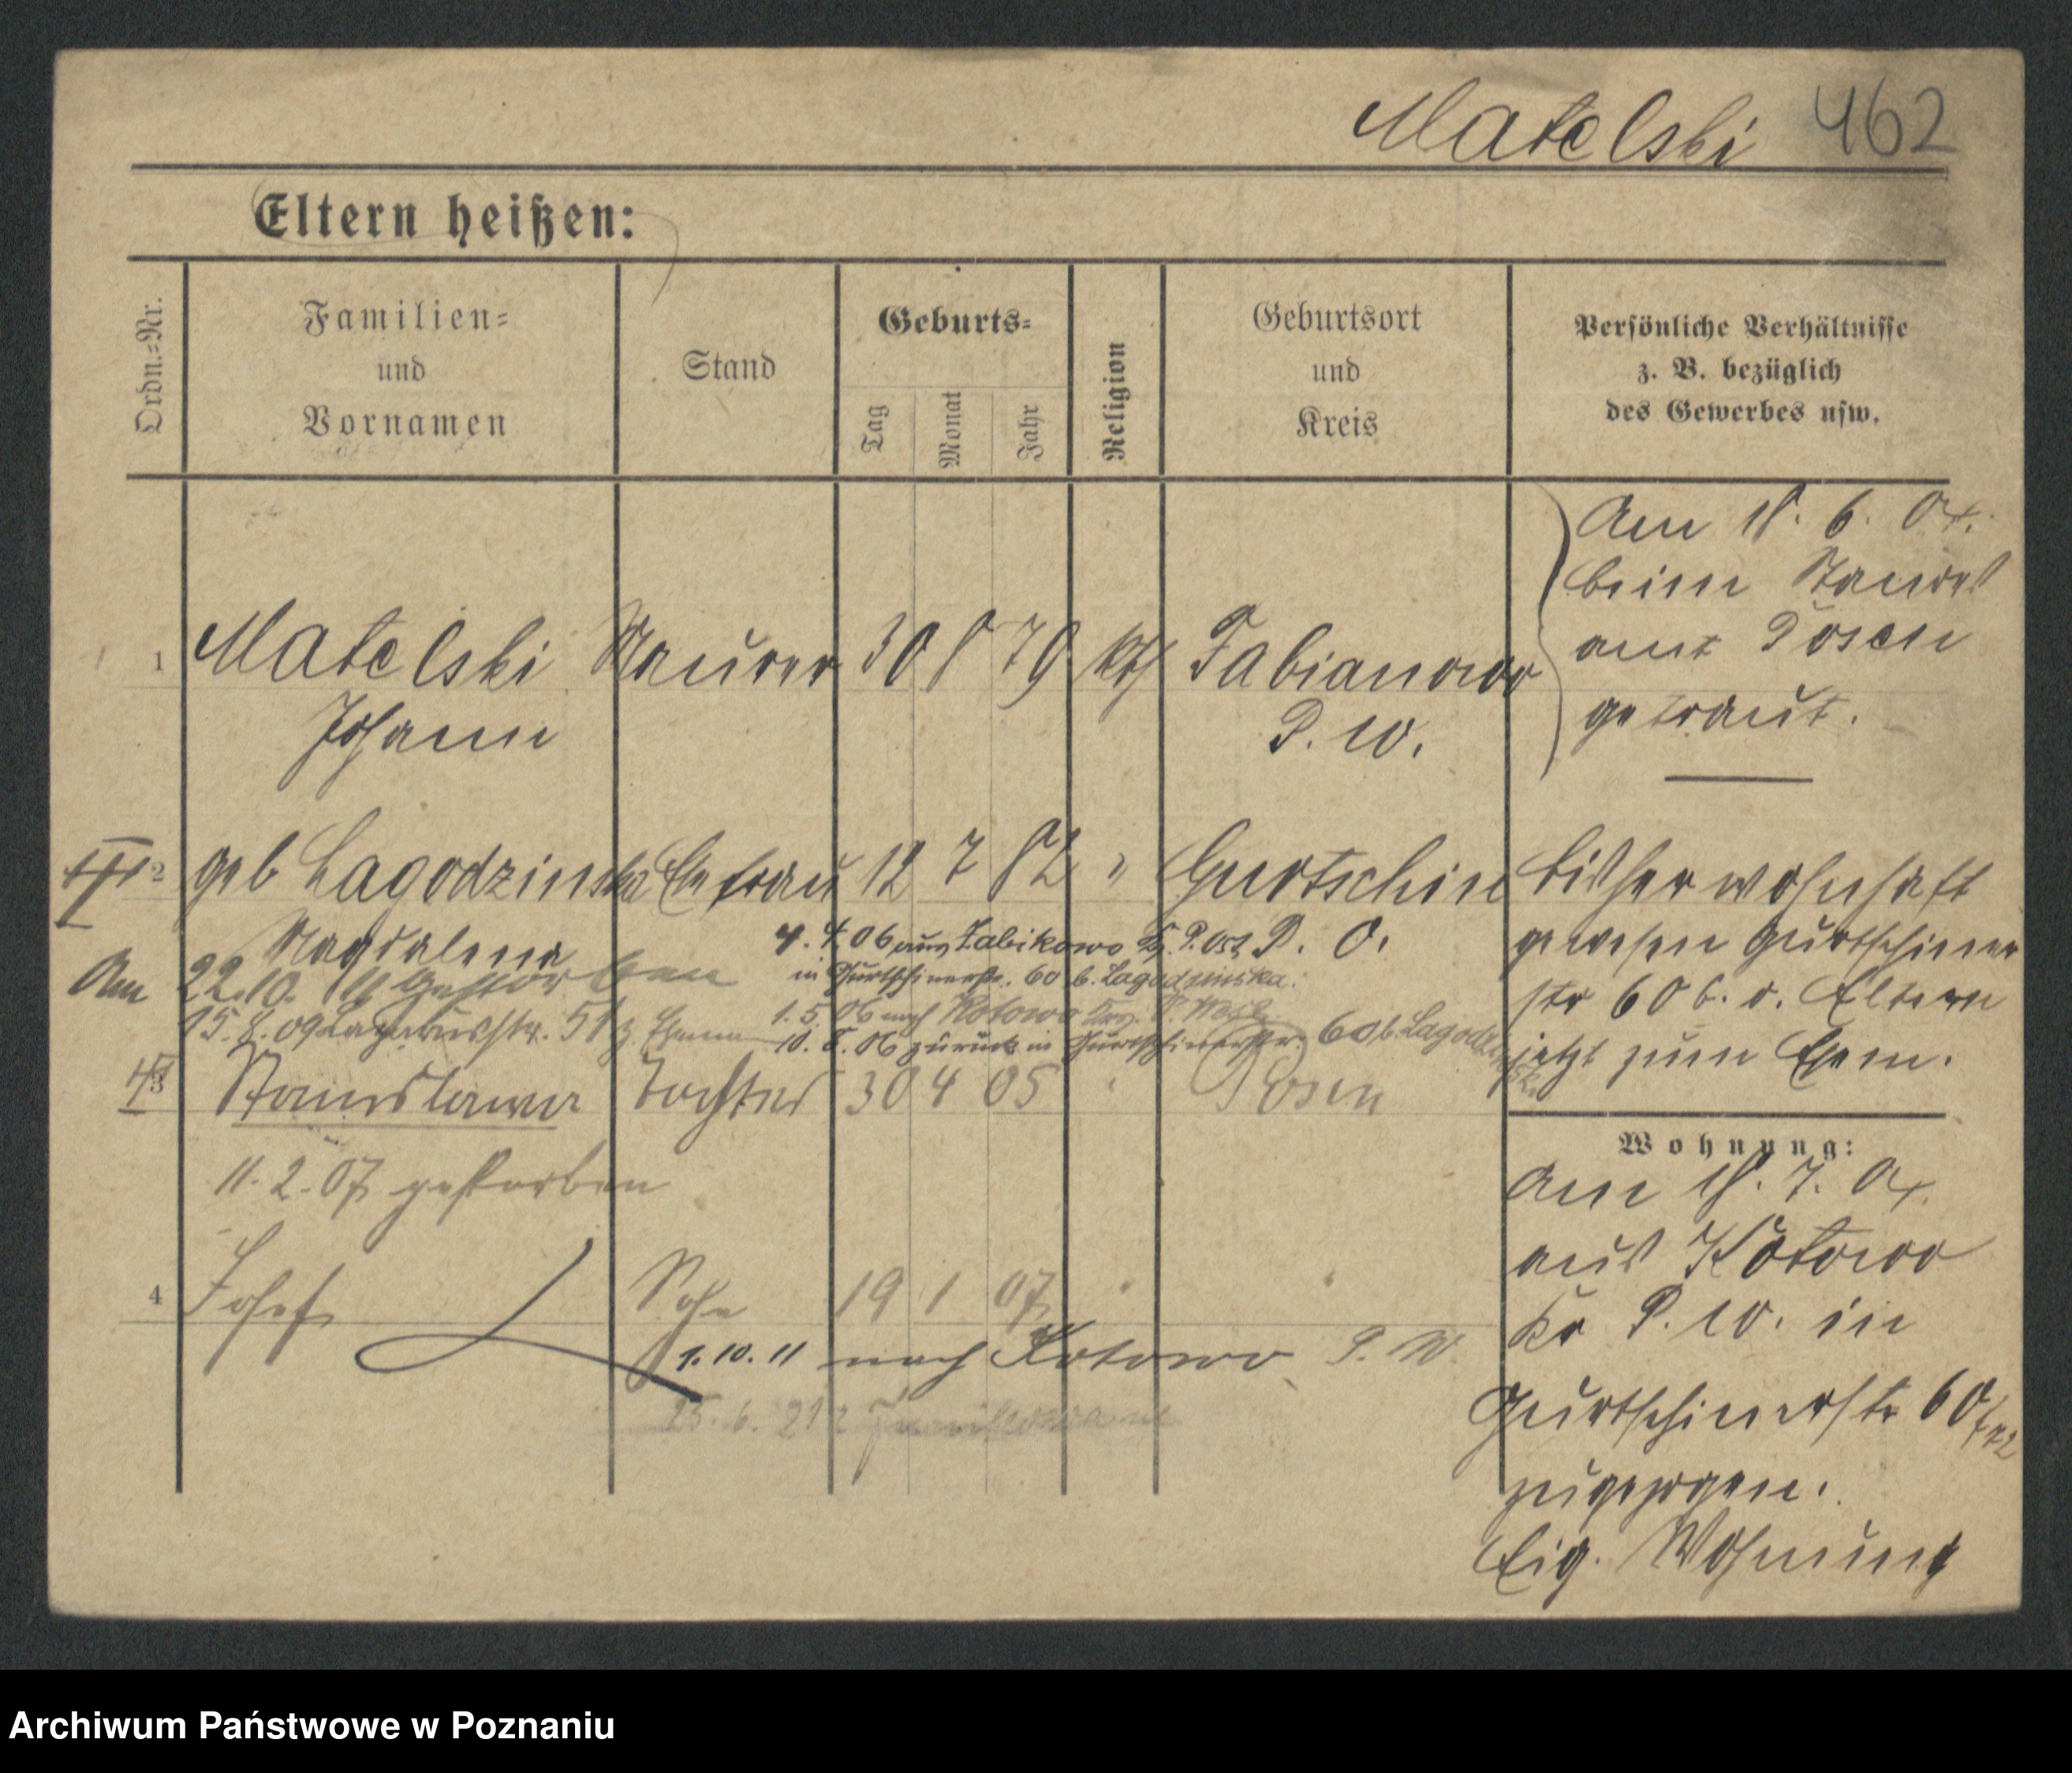 Matelski 462
Eltern heißen:
Ordn.=Nr.
Familien=
und
Vornamen
Stand
Geburts=
Tag
Monat
Jahr
Religion
Geburtsort
und
Kreis
Persönliche Verhältnisse
z. B. bezüglich
des Gewerbes usw.
1 Matelski Maurer 30 8 79 kth Fabianowo
Johann P. W.
Am 18. 6. 04.
beim Standes
amt Posen
getraut.
2 geb Lagodzinska Ehefrau 12 7 82 " Gurtschin
Magdalena
P. O.
4. 4. 06 aus Zabikowo Kr. P. Ost
in Gurtschinerstr. 60 b. Lagodzinska.
Am 22.10. 11 gestorben
1. 5. 06 nach Kotowo P. West
15. 8. 09 Lazarusstr. 51
10. 8. 06 zurück in Gurtschinerstr. 60 b. Lagodzinska
bisher wohnhaft
gewesen Gurtschiner
str 60 b. d. Eltern
jetzt zum Ehem.
3 Stanislawa Tochter 30 4 05 " Posen
11. 2. 07 gestorben
4 Josef Sohn 19 1 07 " "
1. 10. 11 nach Kotowo P. W.
25. 6. 21
Wohnung:
Am 18. 7. 04.
aus Kotowo
Kr P. W. in
Gurtschinerstr 60
zugezogen.
Eig. Wohnung
Archiwum Państwowe w Poznaniu